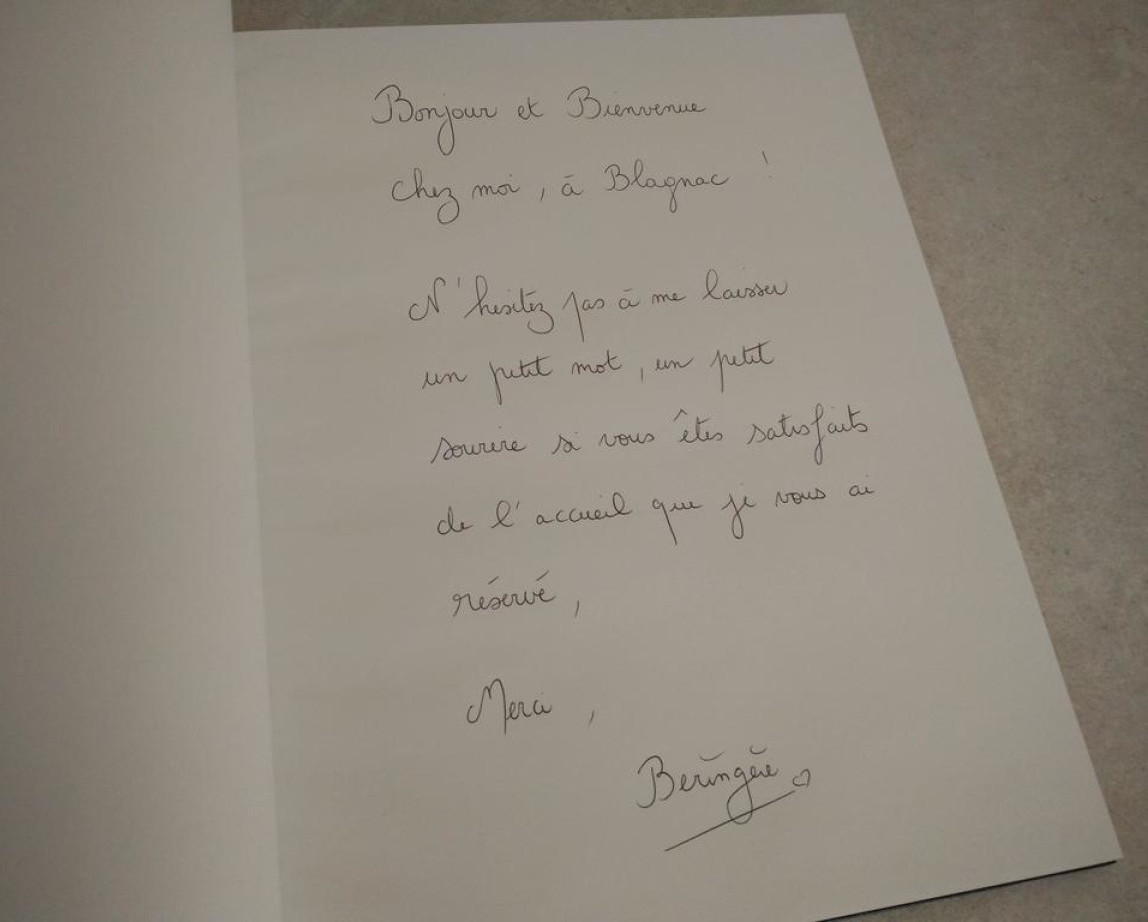 Bonjour et Bienvenue
chez moi, à Blagnac !
N'hesitez pas à me laisser
un petit mot, un petit
sourire si vous êtes satisfaits
de l'accueil que je vous ai
réservé,
Merci,
Beringère